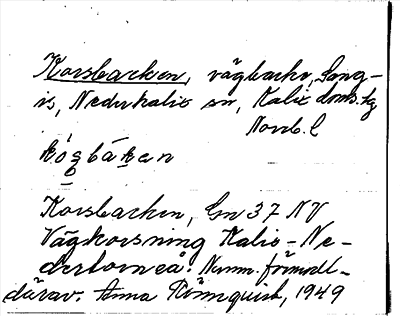 Korsbacken, vägbacke, Sang-
is, Nederkalix sn, Kalix doms. tg
Norrb. l
Korsbacken, Gn 37 NV
Vägkorsning Kalix - Ne-
dertorneå. Namn. förmodl.
därav. Anna Rönnquist, 1949